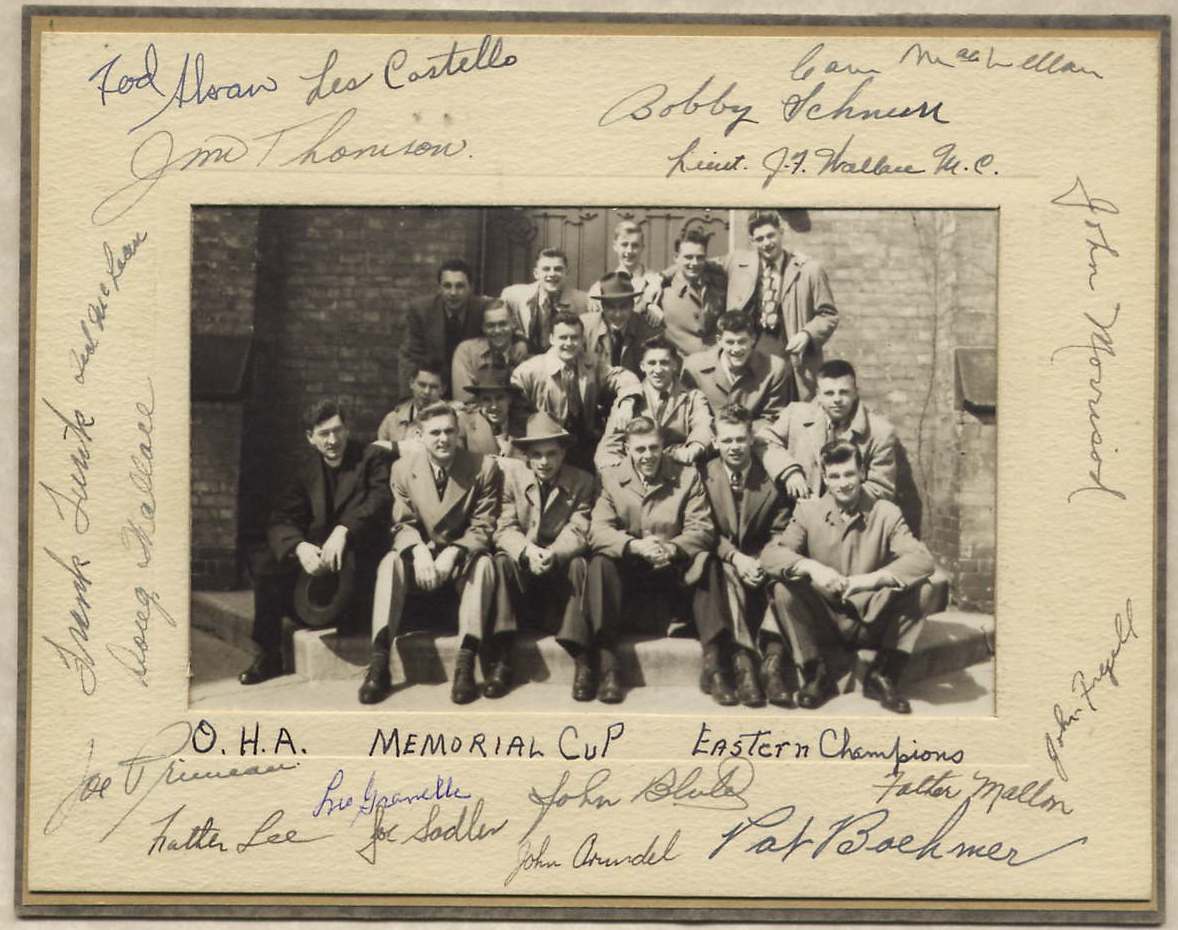 Tod Sloan
Les Costello
Cam MacLellan
Bobby Schnurr
Jim Thomson.
Lieut. J.F. Wallace M.C.
John Morrison
McLean
Frank Turik
Doug Wallace
O.H.A. MEMORIAL CUP EASTERN Champions
Joe Primeau
Leo Gravelle
John Blute
Father Mallon
Father Lee
Joe Sadler
John Arundel
Pat Boehmer
John Frezell